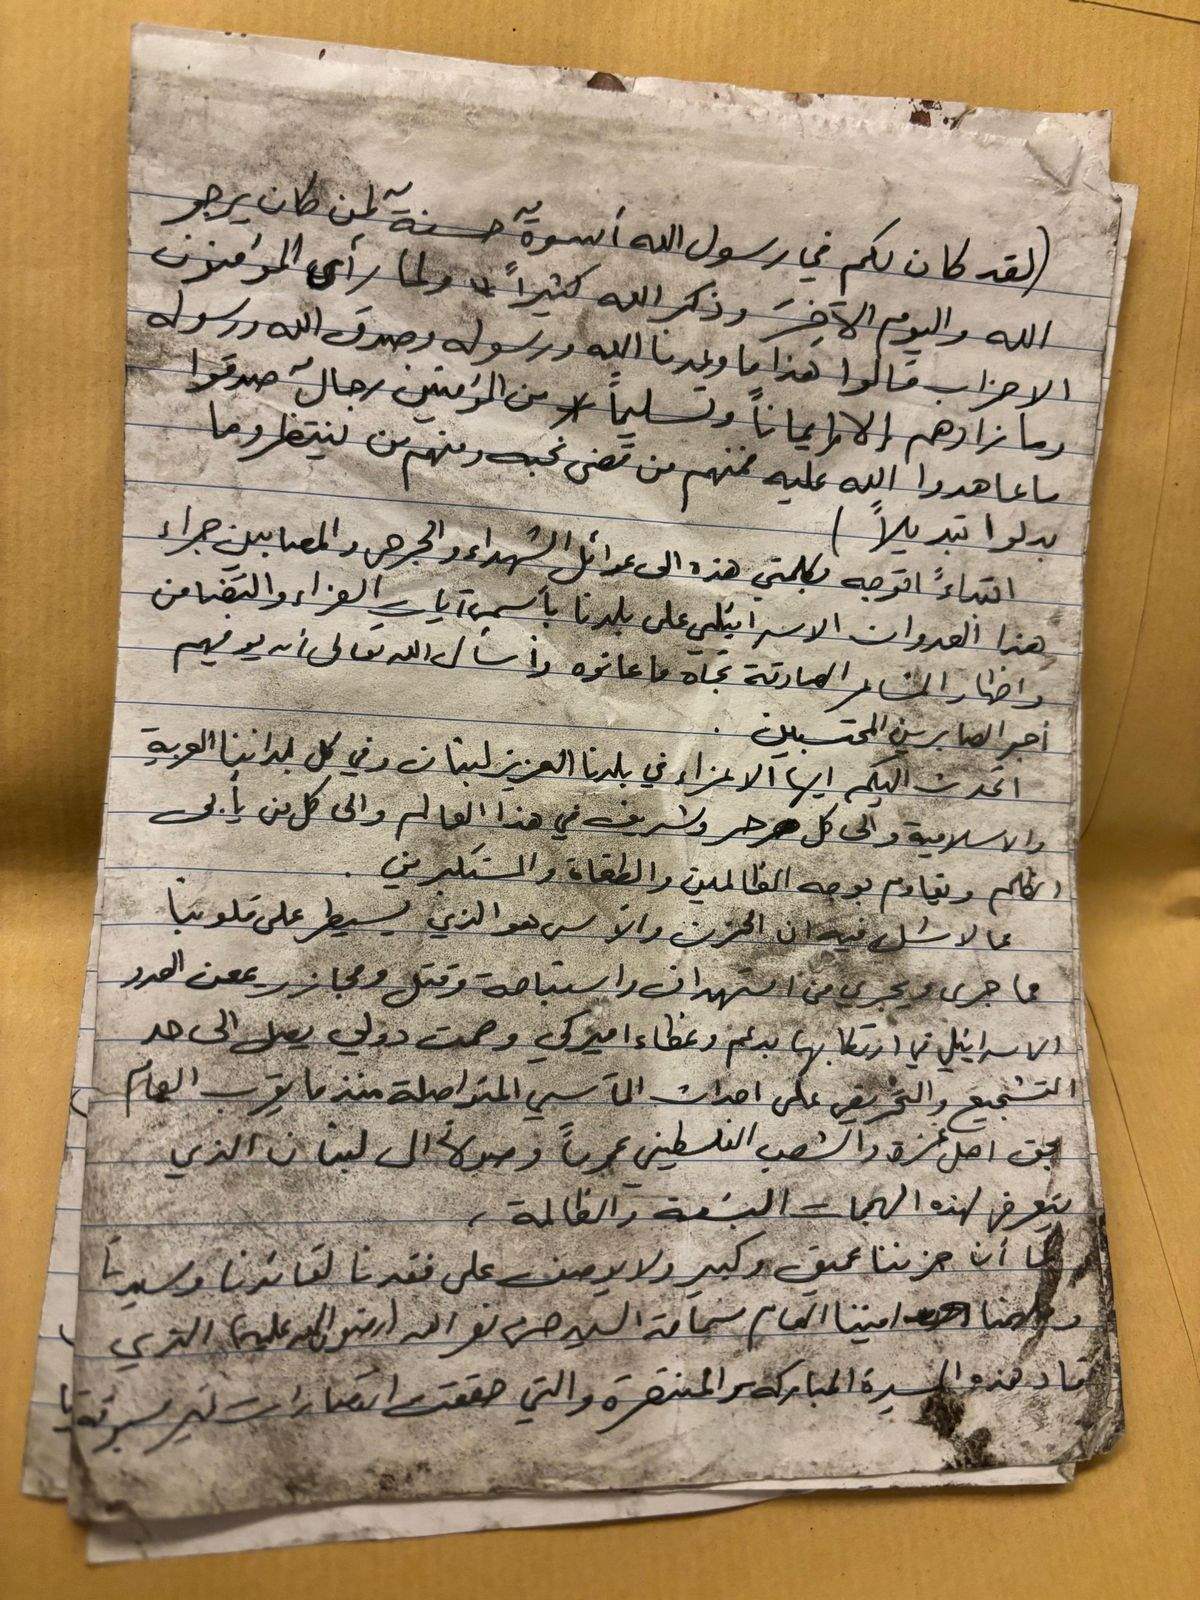 (لقد كان لكم في رسول الله أسوةٌ حسنةٌ لمن كان يرجو
الله واليوم الآخرَ وذكر الله كثيراً ولما رأى المؤمنون
الاحزاب قالوا هذا ما وعدنا الله ورسوله وصدق الله ورسوله
وما زادهم إلا إيماناً وتسليماً من المؤمنين رجالٌ صدقوا
ما عاهدوا الله عليه فمنهم من قضى نحبه ومنهم من ينتظر وما
بدلوا تبديلاً)
ابتداءً اتوجه بكلمتي هذه الى عوائل الشهداء والجرحى والمصابين جراء
هذا العدوان الاسرائيلي على بلدنا بأسمى آيات العزاء والتضامن
واظهار المشاعر الصادقة تجاه ما عانوه وأسأل الله تعالى أن يوفيهم
أجر الصابرين المحتسبين .
اتحدث اليكم ايها الاعزاء في بلدنا العزيز لبنان وفي كل بلداننا العربية
والاسلامية والى كل حر وشريف في هذا العالم والى كل من يأبى
الظلم ويقاوم بوجه الظالمين والطغاة والمستكبرين .
مما لا شك فيه ان الحزن والأسى هو الذي يسيطر على قلوبنا
مما جرى ويجري من استهداف واستباحة وقتل ومجازر يمعن العدو
الاسرائيلي في ارتكابها بدعم وغطاء اميركي وصمت دولي يصل الى حد
التشجيع والتحريض على احداث المآسي المتواصلة منذ ما يقرب العام
بحق اهل غزة والشعب الفلسطيني عموماً وصولاً الى لبنان الذي
يتعرض لهذه الهجمات البشعة والظالمة ،
كما أن حزننا عميق وكبير ولا يوصف على فقدنا لقائدنا وسيدنا
اميننا العام سماحة السيد حسن نصر الله (رضوان الله عليه) الذي
قاد هذه المسيرة المباركة والمنتصرة والتي حققت انتصارات غير مسبوقة